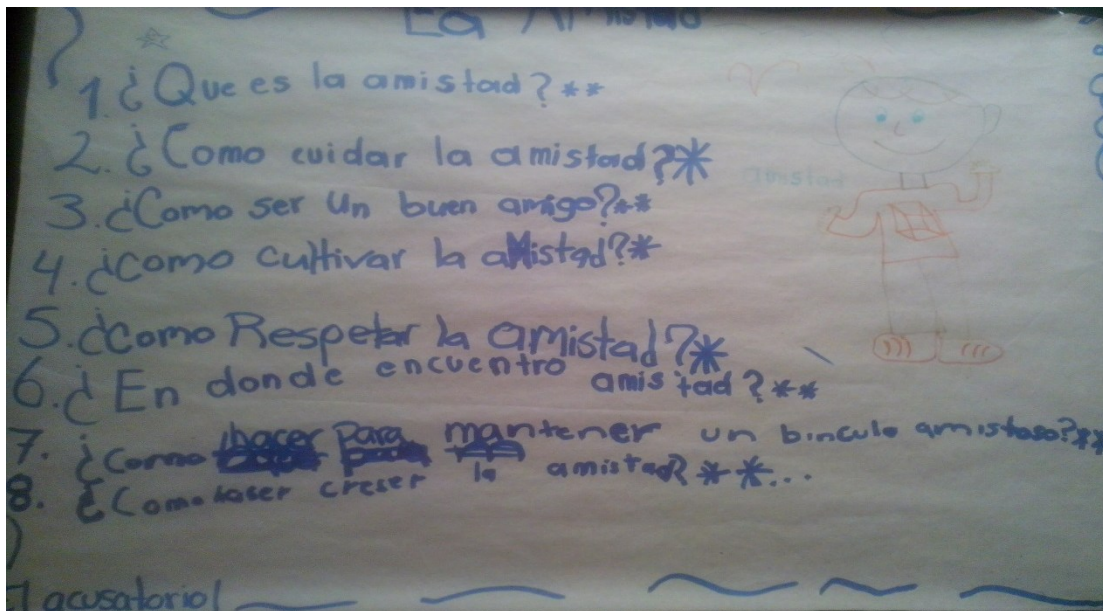 La Amistad
1. ¿Que es la amistad? **
2. ¿Como cuidar la amistad?*
3. ¿Como ser un buen amigo?**
4. ¿como cultivar la aMistad?*
5. ¿como Respetar la amistad?*
6. ¿En donde encuentro amistad? **
7. ¿como hacer para mantener un binculo amistoso?**
8. ¿Como haser creser la amistad? **...
acusatorio